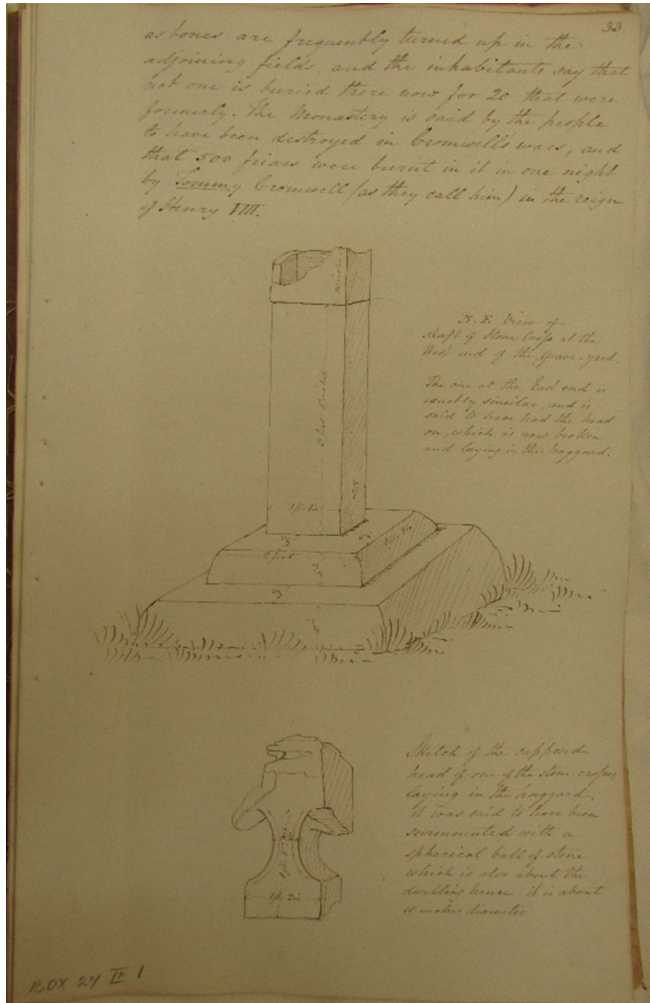 33.
as bones are frequently turned up in the
adjoining fields, and the inhabitants say that
not one is buried there now for 20 that were
formerly. The Monastery is said by the people
to have been destroyed in Cromwell's wars, and
that 500 friars were burnt in it in one night
by Tommy Cromwell (as they call him) in the reign
of Henry VIII.
N.E. View of
shaft of Stone Cross at the
West end of the Grave-yard.
The one at the East end is
exactly similar, and is
said to have had the head
on, which is now broken
and laying in the haggard.
1ft. 2in
2 feet
Sketch of the supposed
head of one of the stone crosses
laying in the haggard,
it was said to have been
surmounted with a
spherical ball of stone
which is also about the
dwelling house, it is about
10 inches diameter
1ft. 2in
BOX 24 II 1